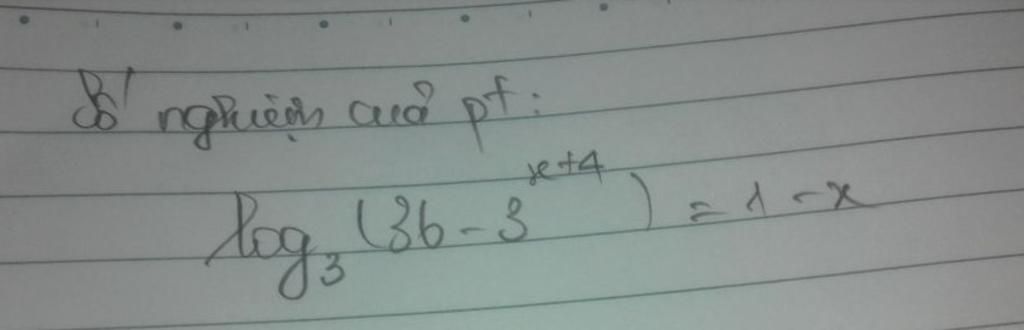 Số nghiệm của pt:
log₃ (36 - 3^{x+4}) = 1 - x